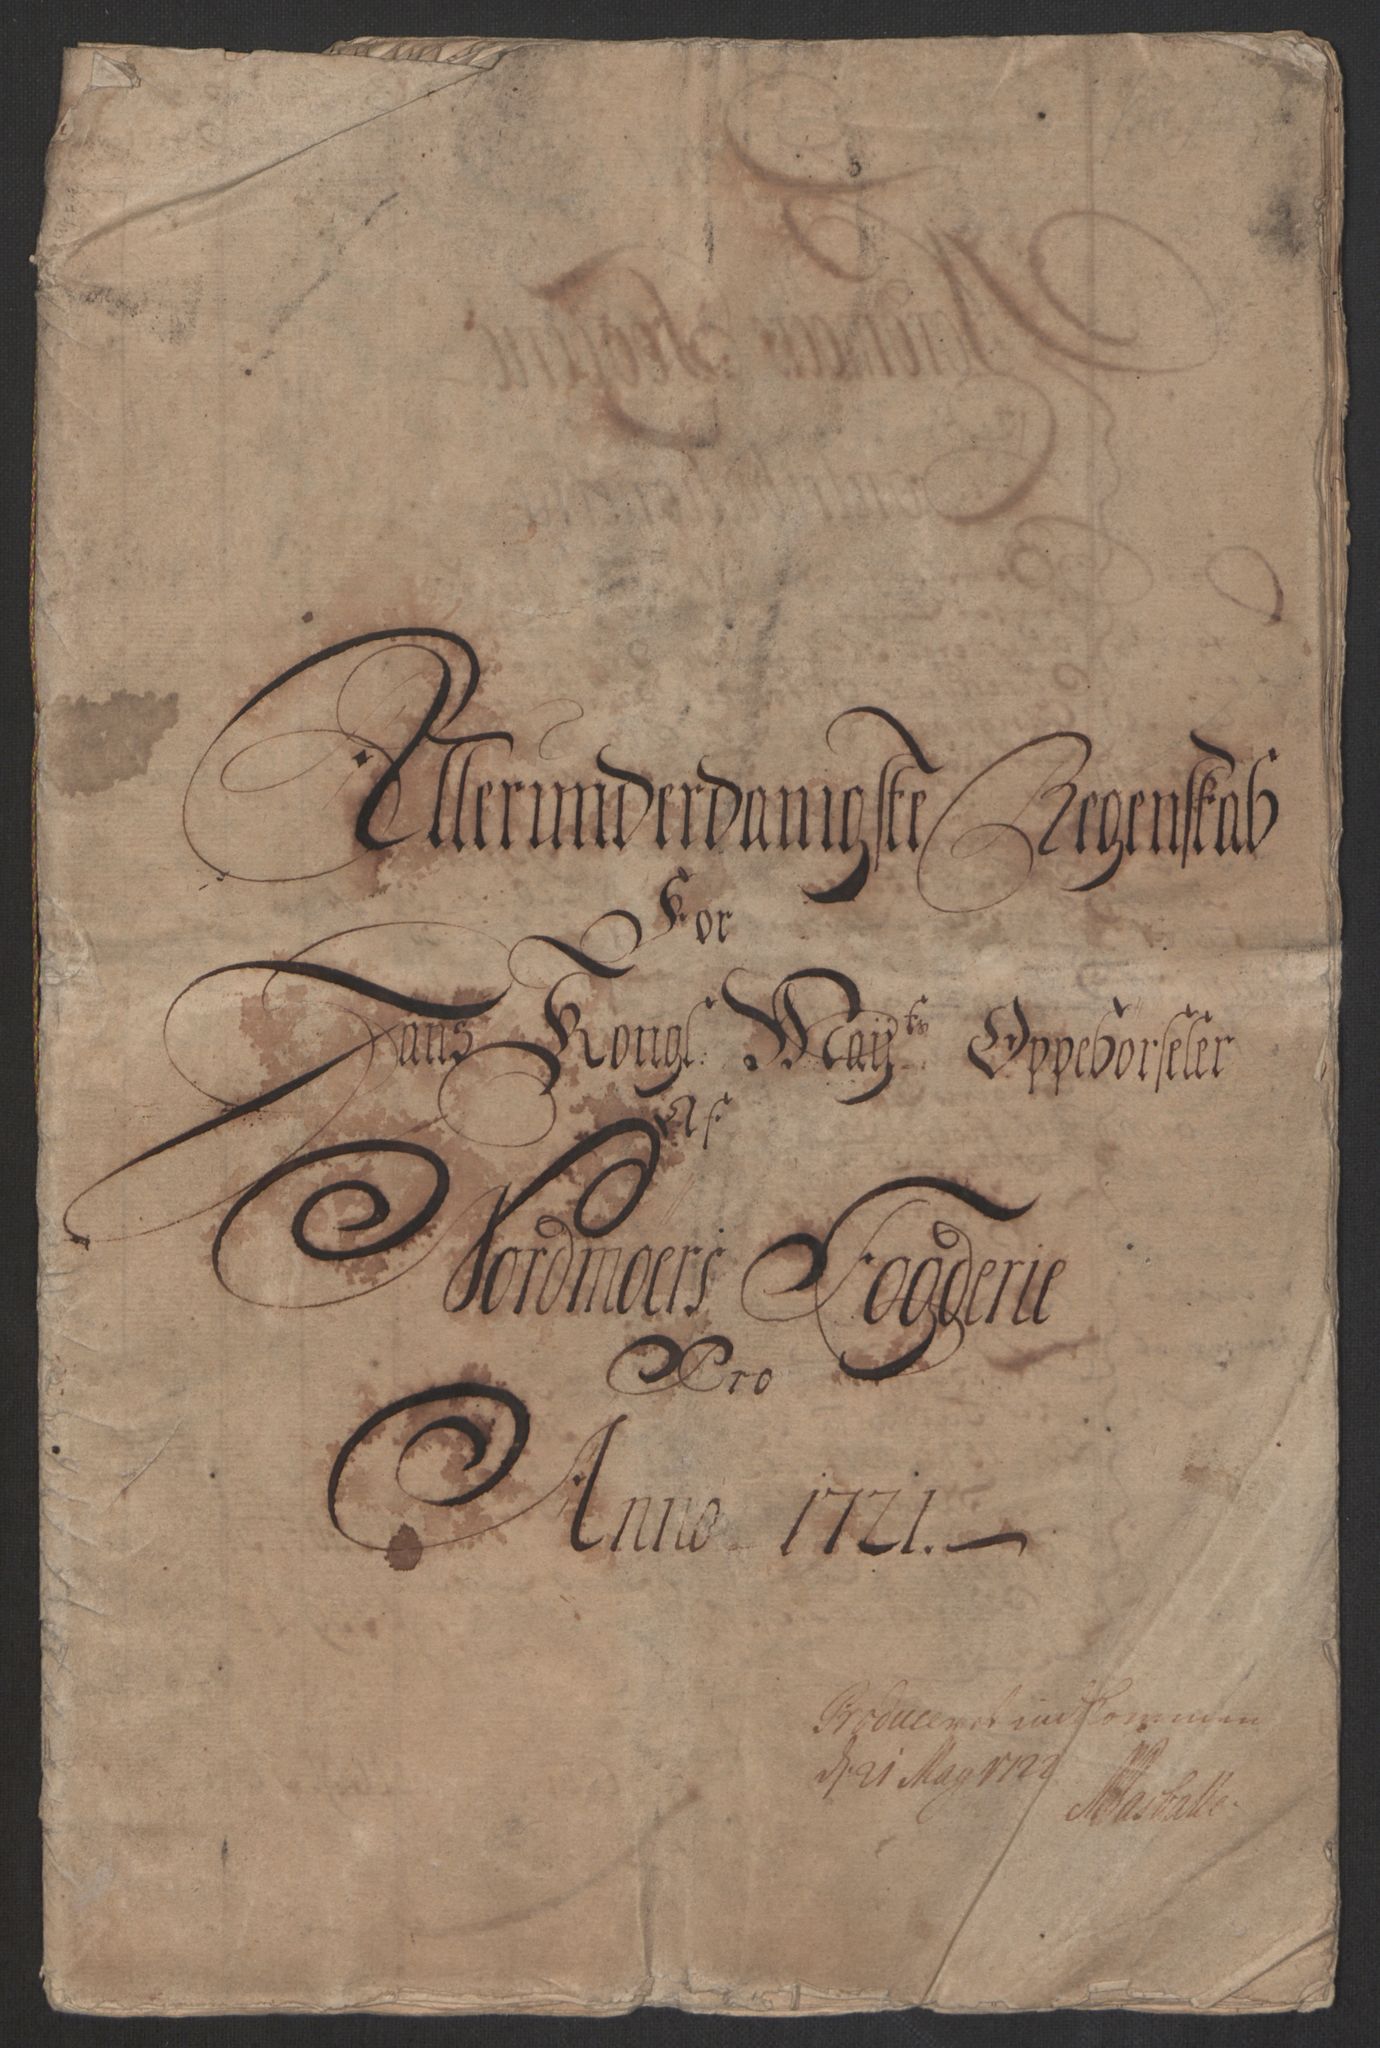 Allerunderdanigste Regenskab
For
Hans Kongl. Mayts Oppebørseler
Af
Nordmoers Fogderie
Pro
Anno 1721.
Produceret ind Commen
d 21 May 1722